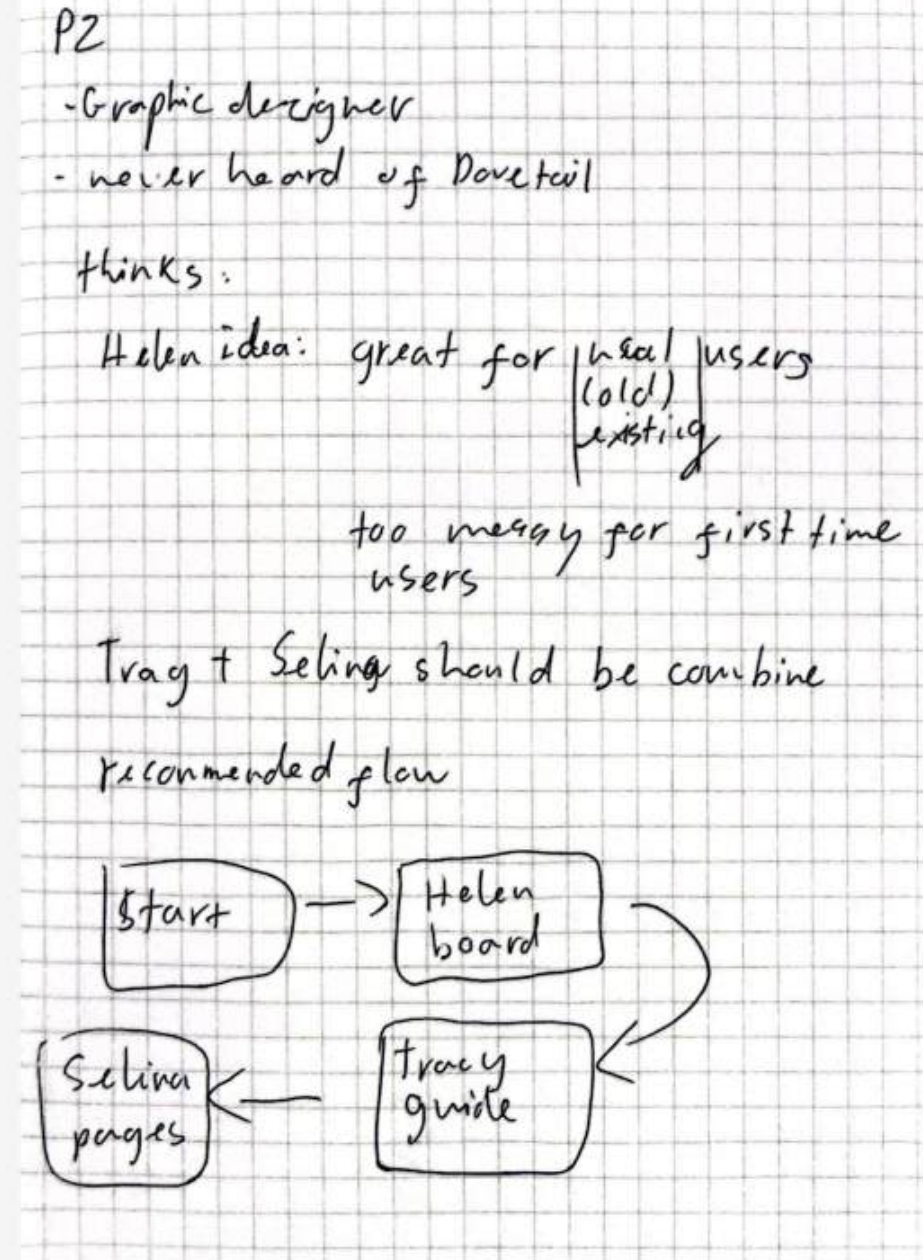 P2
-Graphic designer
- never heard of Dovetail
thinks:
Helen idea: great for users
(old)
existing
too messy for first time
users
Tracy + Selina should be combine
recommended flow
Start
Helen
board
tracy
guide
Selina
pages